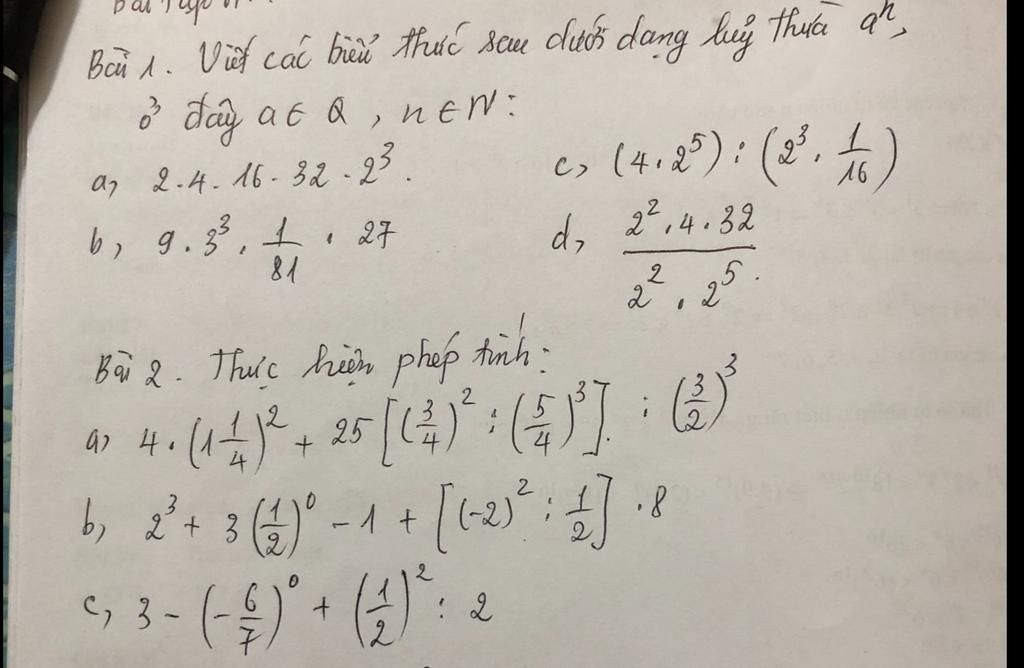 Bài tập
Bài 1. Viết các biểu thức sau dưới dạng luỹ thừa aⁿ,
ở đây a ∈ Q, n ∈ N:
a, 2.4.16.32.2³.
c, (4.2⁵) : (2³.1/16)
b, 9.3³.1/81.27
d, (2².4.32)/(2².2⁵).
Bài 2. Thực hiện phép tính:
a, 4.(1 1/4)² + 25[(3/4)² : (5/4)³] : (3/2)³
b, 2³ + 3(1/2)⁰ - 1 + [(-2)² : 1/2].8
c, 3 - (-6/7)⁰ + (1/2)² : 2